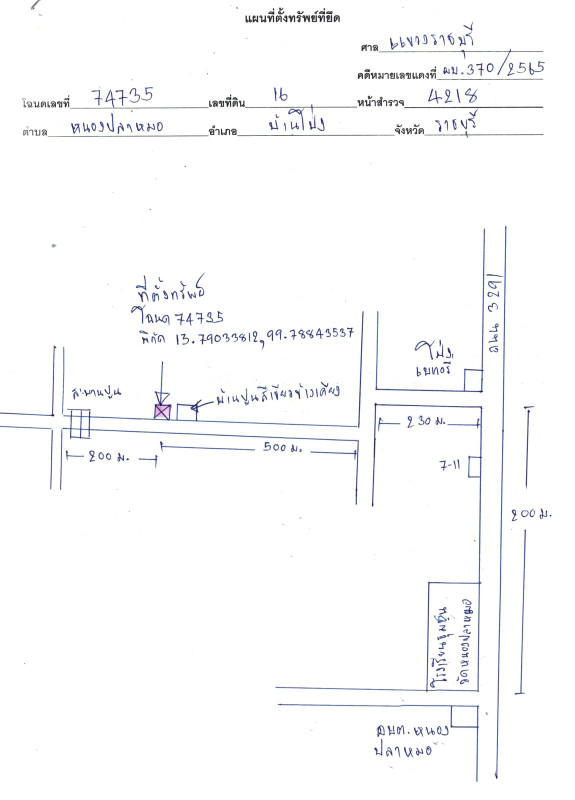 แผนที่ตั้งทรัพย์ที่ยึด
ศาล แขวงราชบุรี
คดีหมายเลขแดงที่ ผบ.370/2565
โฉนดเลขที่ 74735 เลขที่ดิน 16 หน้าสำรวจ 4218
ตำบล หนองปลาหมอ อำเภอ บ้านโป่ง จังหวัด ราชบุรี
ที่ตั้งทรัพย์
โฉนด 74735
พิกัด 13.79033812, 99.78843537
ถนน 3291
โป่ง
เบทอรี่
สะพานปูน
บ้านปูนสีเขียวข้างเคียง
230 ม.
200 ม.
500 ม.
7-11
200 ม.
โรงเรียนชุมชน
วัดหนองปลาหมอ
อบต.หนอง
ปลาหมอ